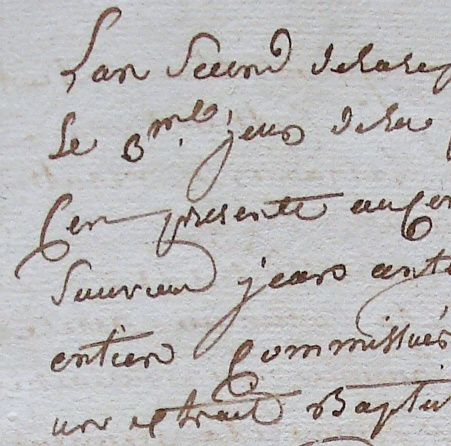 L'an Second de la re
Le 3me jour de la
Cen presente au con
jean anto
entier Commissue
un extrait Bapti